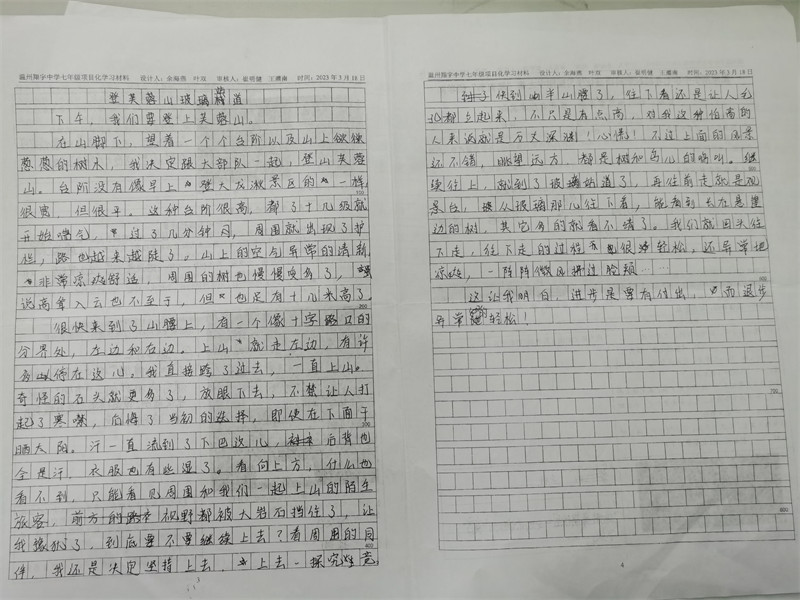 温州翔宇中学七年级项目化学习材料 设计人：余海燕 叶双 审核人：崔明健 王潇南 时间：2023年3月18日
登芙蓉山玻璃栈道
下午，我们要登上芙蓉山。
在山脚下，望着一个个台阶以及山上鬱鬱
葱葱的树木，我决定跟大部队一起，登山芙蓉
山。台阶没有像早上登大龙湫景区的一样，
很宽，但很平。这种台阶很高，都了十几级就
开始喘气，过了几分钟后，周围就出现了护
栏，路也越来越陡了。山上的空气异常的清新，
非常凉爽舒适，周围的树也慢慢变多了，
说高耸入云也不至于，但也足有十几米高了。
很快来到了山腰上，有一个像十字路口的
分界处，左边和右边。上山就走左边，有许
多人停在这儿。我直接跨了过去，一直上山。
奇怪的石头就更多了，放眼下去，不禁让人打
起了寒噤，后悔了当初的选择，即使在下面干
晒太阳。汗一直流到了下巴这儿，后背也
全是汗，衣服也有些湿了。看向上方，什么也
看不到，只能看见周围和我们一起上山的陌生
旅客，前方的视野都被大岩石挡住了，让
我犹犹了，到底要不要继续上去了？看周围的同
伴，我还是决定坚持上去，上去一探究竟
3
温州翔宇中学七年级项目化学习材料 设计人：余海燕 叶双 审核人：崔明健 王潇南 时间：2023年3月18日
快到山半山腰了，往下看还是让人毛
记都立起来，不只是有点高，对我这种怕高的
人来说就是万丈深渊！心慌！不过上面的风景
还不错，眺望远方，都是树和鸟儿的鸣叫。继
续往上，就到了玻璃栈道了，再往前走就是观
景台，从玻璃那儿往下看，能看到长在悬崖
边的树，其它多的就看不清了。我们就回头往
下走，往下走的过程很轻松，还异常地
凉爽，一阵阵微风拂过脸颊……
这让我明白，进步是要有付出，而退步
异常轻松！
4